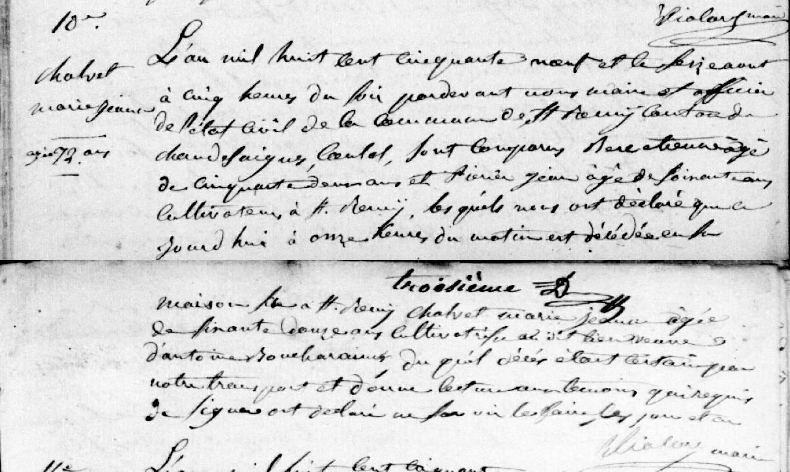 10e.
Vialard maire
chalvet
marie jeanne
agée 72 ans
L'an mil huit cent cinquante neuf et le seize aout
à cinq heures du soir pardevant nous maire et officier
de l'état Civil de la Commune de St Remy Canton de
chaudesaigues, Cantal, sont comparus étienne âgé
de cinquante deux ans et jean âgé de soixante ans
Cultivateurs à St. Remy, lesquels nous ont déclaré que ce
jourd'hui à onze heures du matin est décédée en sa
troisième
maison sise à St. Remy Chalvet marie jeanne âgée
de soixante douze ans Cultivatrice veuve
d'antoine du quel décés étant certain par
notre transport et donné lecture aux temoins qui requis
de signer ont declaré ne savoir les faire, les jour et an
Vialard maire
11e
L'an mil huit cent cinquante